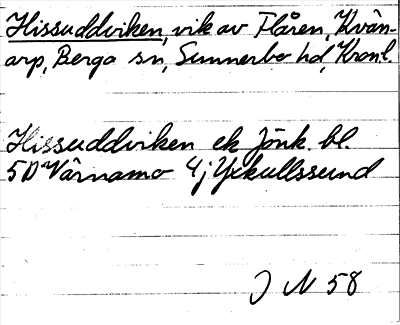 Hissuddviken, vik av Flåren, Kvän-
arp, Berga sn, Sunnerbo hd, Kronl.
Hissuddviken ek Jönk. bl.
5D Värnamo 4j Yxkullssund
J N 58